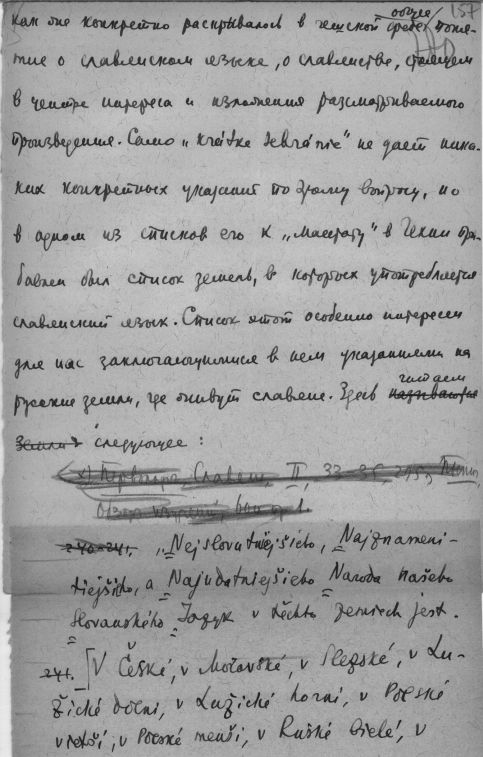 общее 157
как же конкретно раскрывалось в чешской среде поня-
тие о славянском языке, о славянстве, стоящем
в центре интереса и изложения рассматриваемого
произведения. Само „Krátke sebránie" не дает ника-
ких конкретных указаний по этому вопросу, но
в одном из списков его к „Маестату" в Чехии при-
бавлен был список земель, в которых употребляется
славянский язык. Список этот особенно интересен
для нас заключающимися в нем указаниями на
читаем
русские земли, где живут славяне. Здесь
земли следующее:
x) Первольф, Славяне, II, 33-35, 215,
240-241. „Nejslovutnějšieho, Najznameni-
tiejšiho, a Najudatniejšieho Naroda našeho
Slovanského Jazyk v těchto zemiech jest.
241. [V České, v Moravské, v Slezské, v Lu-
žické dolní, v Lužické horní, v Polské
větší, v Polské menší, v Ruské bielé, v